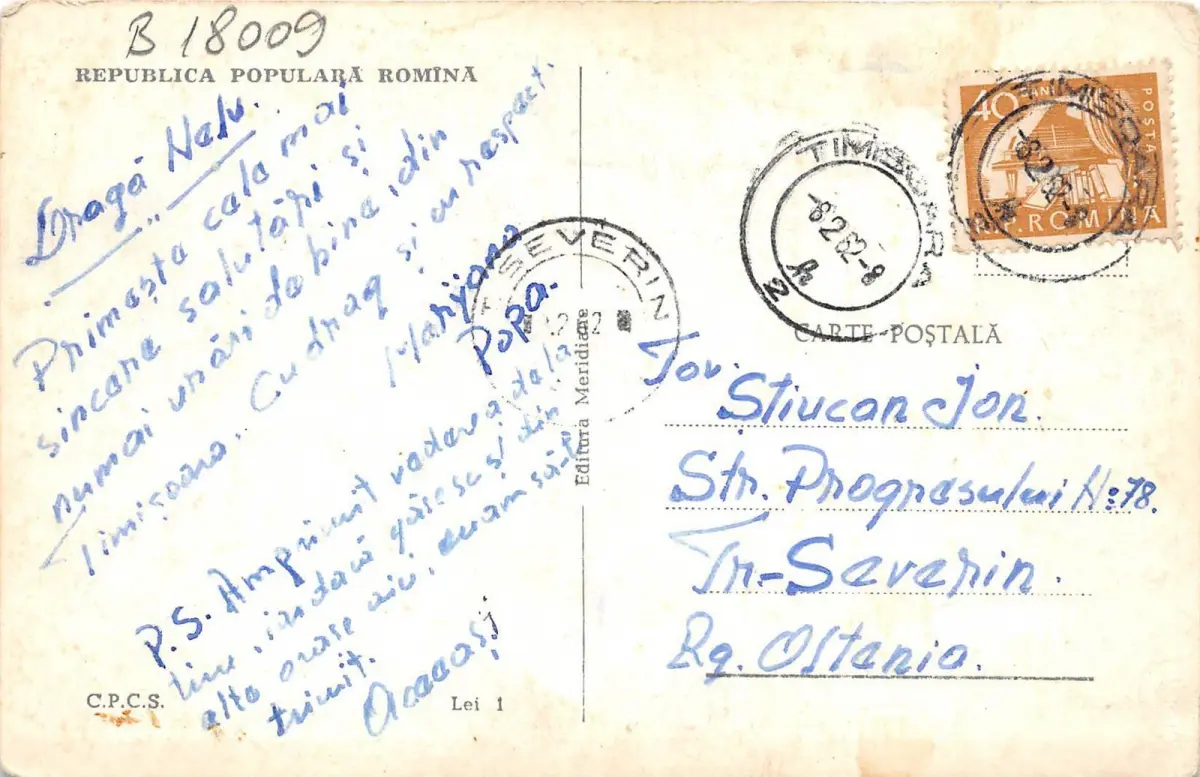 B 18009
REPUBLICA POPULARĂ ROMÎNĂ
Dragă Nelu.
Primește cele mai
sincere salutări și
numai urări de bine, din
Timișoara. Cu drag și cu respect.
Marijana
Popa.
P.S. Am primit vederea de la
tine, iar dacă găsesc și din
alte orașe aici, eu am să-ți
trimit.
Aceeași
C.P.C.S.
Lei 1
Editura Meridiane
SEVERIN
TIMISOARA
-8.2 62.-8
2
40 BANI
POSTA
R.P. ROMINA
TIMISOARA
-8.2 62.-8
CARTE POȘTALĂ
Tov.
Stiucan Jon.
Str. Progresului No: 78.
Tr.-Severin.
Rg. Oltenia.